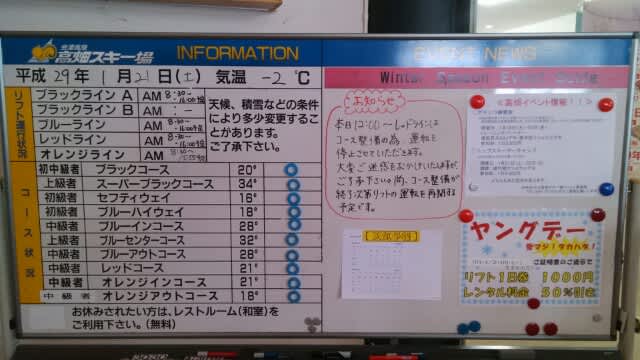 会津高原
高畑スキー場 INFORMATION
平成29年1月21日(土) 気温 -2℃
リフト運行状況
ブラックライン A AM 8:30~16:00
ブラックライン B AM -
ブルーライン AM 8:30~16:00
レッドライン AM 8:30~16:00
オレンジライン AM 8:30~
天候、積雪などの条件
により多少変更すること
があります。
ご了承下さい。
コース状況
初中級者 ブラックコース 20°
上級者 スーパーブラックコース 34°
初級者 セフティウェイ 16°
初級者 ブルーハイウェイ 18°
中級者 ブルーインコース 28°
上級者 ブルーセンターコース 32°
中級者 ブルーアウトコース 28°
中級者 レッドコース 21°
中級者 オレンジインコース 21°
中級者 オレンジアウトコース 18°
お休みされたい方は、レストルーム(和室)を
ご利用下さい。(無料)
EVENT NEWS
Winter Season Event Guide
お知らせ
本日12:00~レッドラインは
コース整備の為、運転を
停止させていただきます。
大変ご迷惑をおかけいたしますが、
ご了承下さい。尚、コース整備が
終了次第リフトの運転を再開する
予定です。
≪高畑イベント情報!!≫
ヤングデー
雪マジ!タカハタ!
リフト1日券 1000円
レンタル料金 50%引き